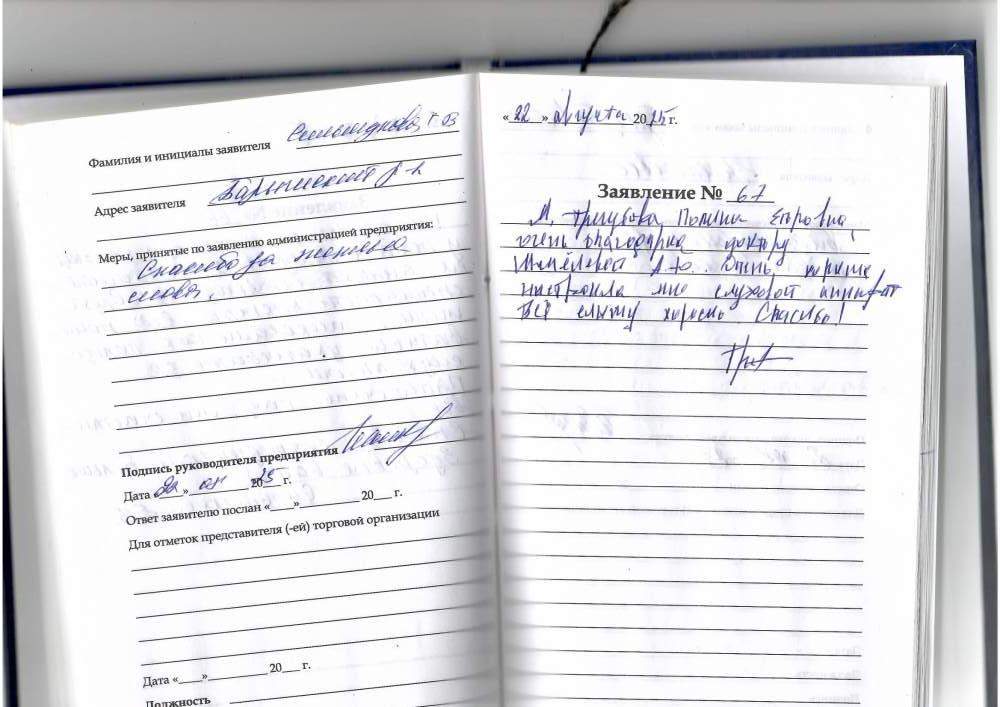 Фамилия и инициалы заявителя
Адрес заявителя р-н
Меры, принятые по заявлению администрацией предприятия:
Спасибо за теплые
слова.
Подпись руководителя предприятия
Дата 22 » 08 2025 г.
Ответ заявителю послан «___»__________ 20___ г.
Для отметок представителя (-ей) торговой организации
Дата «____»__________ 20___ г.
Должность
« 22 » августа 2025 г.
Заявление № 67
Я, Трегубова Полина Егоровна,
очень благодарна доктору
А.Ю. Очень хорошо
настроила мне слуховой аппарат
Всё слышу хорошо Спасибо!